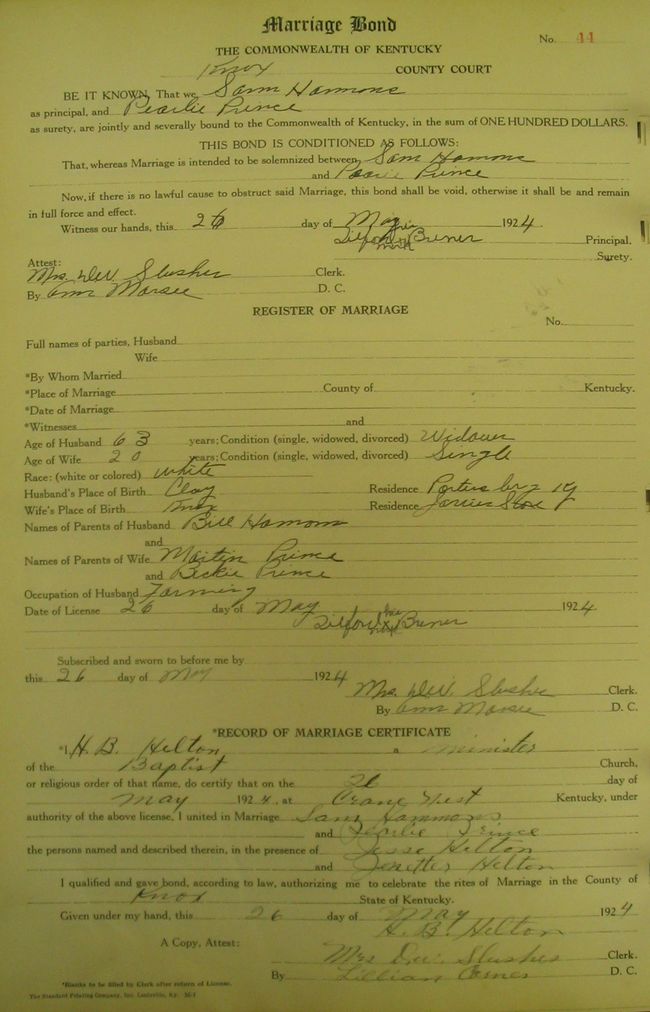 Marriage Bond
No. 44
THE COMMONWEALTH OF KENTUCKY
Knox COUNTY COURT
BE IT KNOWN, That we, Sam Hammons
as principal, and Pearlie Prince
as surety, are jointly and severally bound to the Commonwealth of Kentucky, in the sum of ONE HUNDRED DOLLARS.
THIS BOND IS CONDITIONED AS FOLLOWS:
That, whereas Marriage is intended to be solemnized between Sam Hamons
and Pearlie Prince
Now, if there is no lawful cause to obstruct said Marriage, this bond shall be void, otherwise it shall be and remain
in full force and effect.
Witness our hands, this 26 day of May 1924
his
mark Principal.
Surety.
Attest:
Mrs. D.W. Slusher Clerk.
By D. C.
REGISTER OF MARRIAGE
No.
Full names of parties, Husband
Wife
*By Whom Married
*Place of Marriage County of Kentucky.
*Date of Marriage
*Witnesses and
Age of Husband 63 years; Condition (single, widowed, divorced) Widower
Age of Wife 20 years; Condition (single, widowed, divorced) Single
Race: (white or colored) white
Husband's Place of Birth Clay Residence Ky
Wife's Place of Birth Knox Residence
Names of Parents of Husband Bill Hamons
and
Names of Parents of Wife Martin Prince
and Beckie Prince
Occupation of Husband Farming
Date of License 26 day of May 1924
his
mark
Subscribed and sworn to before me by
this 26 day of May 1924
Mrs. D.W. Slusher Clerk.
By D. C.
*RECORD OF MARRIAGE CERTIFICATE
*I, H. B. Helton a minister
of the Baptist Church,
or religious order of that name, do certify that on the 26 day of
May 1924, at Crane Nest Kentucky, under
authority of the above license, I united in Marriage Sam Hammons
and Pearlie Prince
the persons named and described therein, in the presence of Jesse Helton
and Helton
I qualified and gave bond, according to law, authorizing me to celebrate the rites of Marriage in the County of
Knox State of Kentucky.
Given under my hand, this 26 day of May 1924
H. B. Helton
A Copy, Attest:
Mrs D.W. Slusher Clerk.
By Lillian D. C.
*Blanks to be filled by Clerk after return of License.
The Standard Printing Company, Inc. Louisville, Ky.